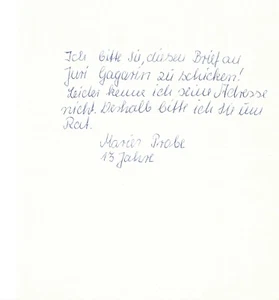 Ich bitte Sie, diesen Brief an
Juri Gagarin zu schicken!
Leider kenne ich seine Adresse
nicht. Deshalb bitte ich Sie um
Rat.
Mario Probe
13 Jahre